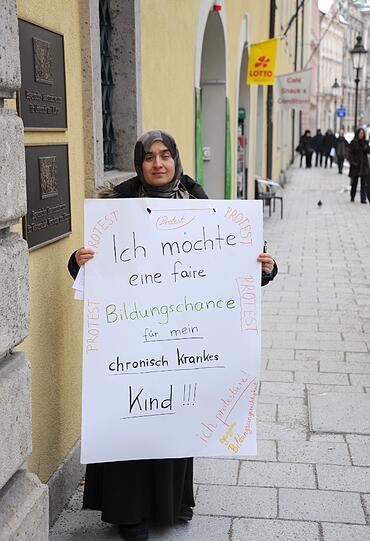 LOTTO
Café
Snack's
PROTEST
Protest
PROTEST
Ich möchte
eine faire
Bildungschance
für mein
chronisch krankes
Kind !!!
PROTEST
PROTEST
ich protestiere!
gegen